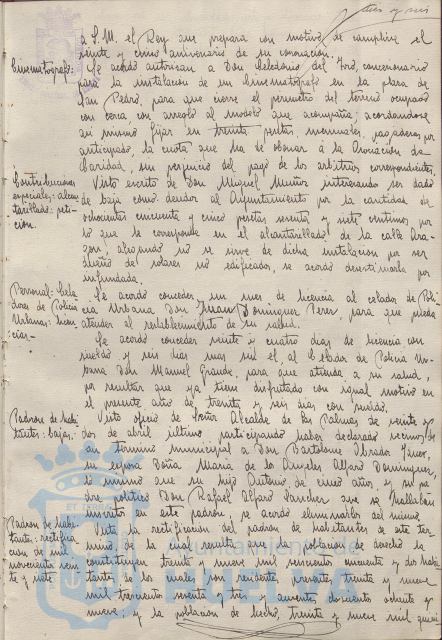 á S. M. el Rey que prepara con motivo de cumplirse el
veinte y cinco aniversario de su coronación.
Cinematógrafo: Se acordó autorizar a Don Celedonio del concesionario
para la instalación de un Cinematógrafo en la plaza de
San Pedro, para que cierre el perímetro del terreno ocupado
con cerca con arreglo al modelo que acompaña; acordándose
así mismo fijar en treinta pesetas mensuales, pagaderas por
anticipado, la cuota que ha de abonar á la Asociación de
Caridad, sin perjuicio del pago de los arbitrios correspondientes.
Contribuciones
especiales; alcan-
tarillado: peti-
ción.
Visto escrito de Don Miguel Muñoz interesando ser dado
de baja como deudor al Ayuntamiento por la cantidad de
ochocientas cincuenta y cinco pesetas sesenta y siete céntimos por
lo que le corresponde en el alcantarillado de la calle Ara-
gón, alegando no se sirve de dicha instalación por ser
dueño de solares no edificados, se acordó desestimarla por
infundada.
Personal: Cela-
dores de Policía
Urbana; licen-
cias.
Se acordó conceder un mes de licencia al celador de Poli-
cía Urbana Don Juan Domínguez Pérez, para que pueda
atender al restablecimiento de su salud.
Se acordó conceder veinte y cuatro días de licencia con
sueldo y seis días mas sin él, al Celador de Policía Ur-
bana Don Manuel Grande, para que atienda a su salud,
por resultar que ya tiene disfrutado con igual motivo en
el presente año de treinta y seis días con sueldo.
Padrón de habi-
tantes: bajas.
Visto oficio de Señor Alcalde de Las Palmas de veinte y
dos de abril último, participando haber declarado vecinos de
aquel término municipal a Don Bartolomé Obrador
su esposa Doña María de los Ángeles Alfaro Domínguez,
lo mismo que su hijo Antonio de cinco años, y su pa-
dre político Don Rafael Alfaro Sánchez que se hallaban
inscritos en este padrón, se acordó eliminarlos del mismo.
Padrón de habi-
tantes: rectifica-
ción de mil
novecientos vein-
te y siete
Vista la rectificación del padrón de habitantes de este tér-
mino de la cual resulta que la población de derecho la
constituyen treinta y nueve mil seiscientos cincuenta y dos habi-
tantes de los cuales son residentes presentes, treinta y nueve
mil trescientos sesenta y tres y ausentes doscientos ochenta y
nueve; y la población de hecho, treinta y nueve mil
Ayuntamiento de
HUELVA